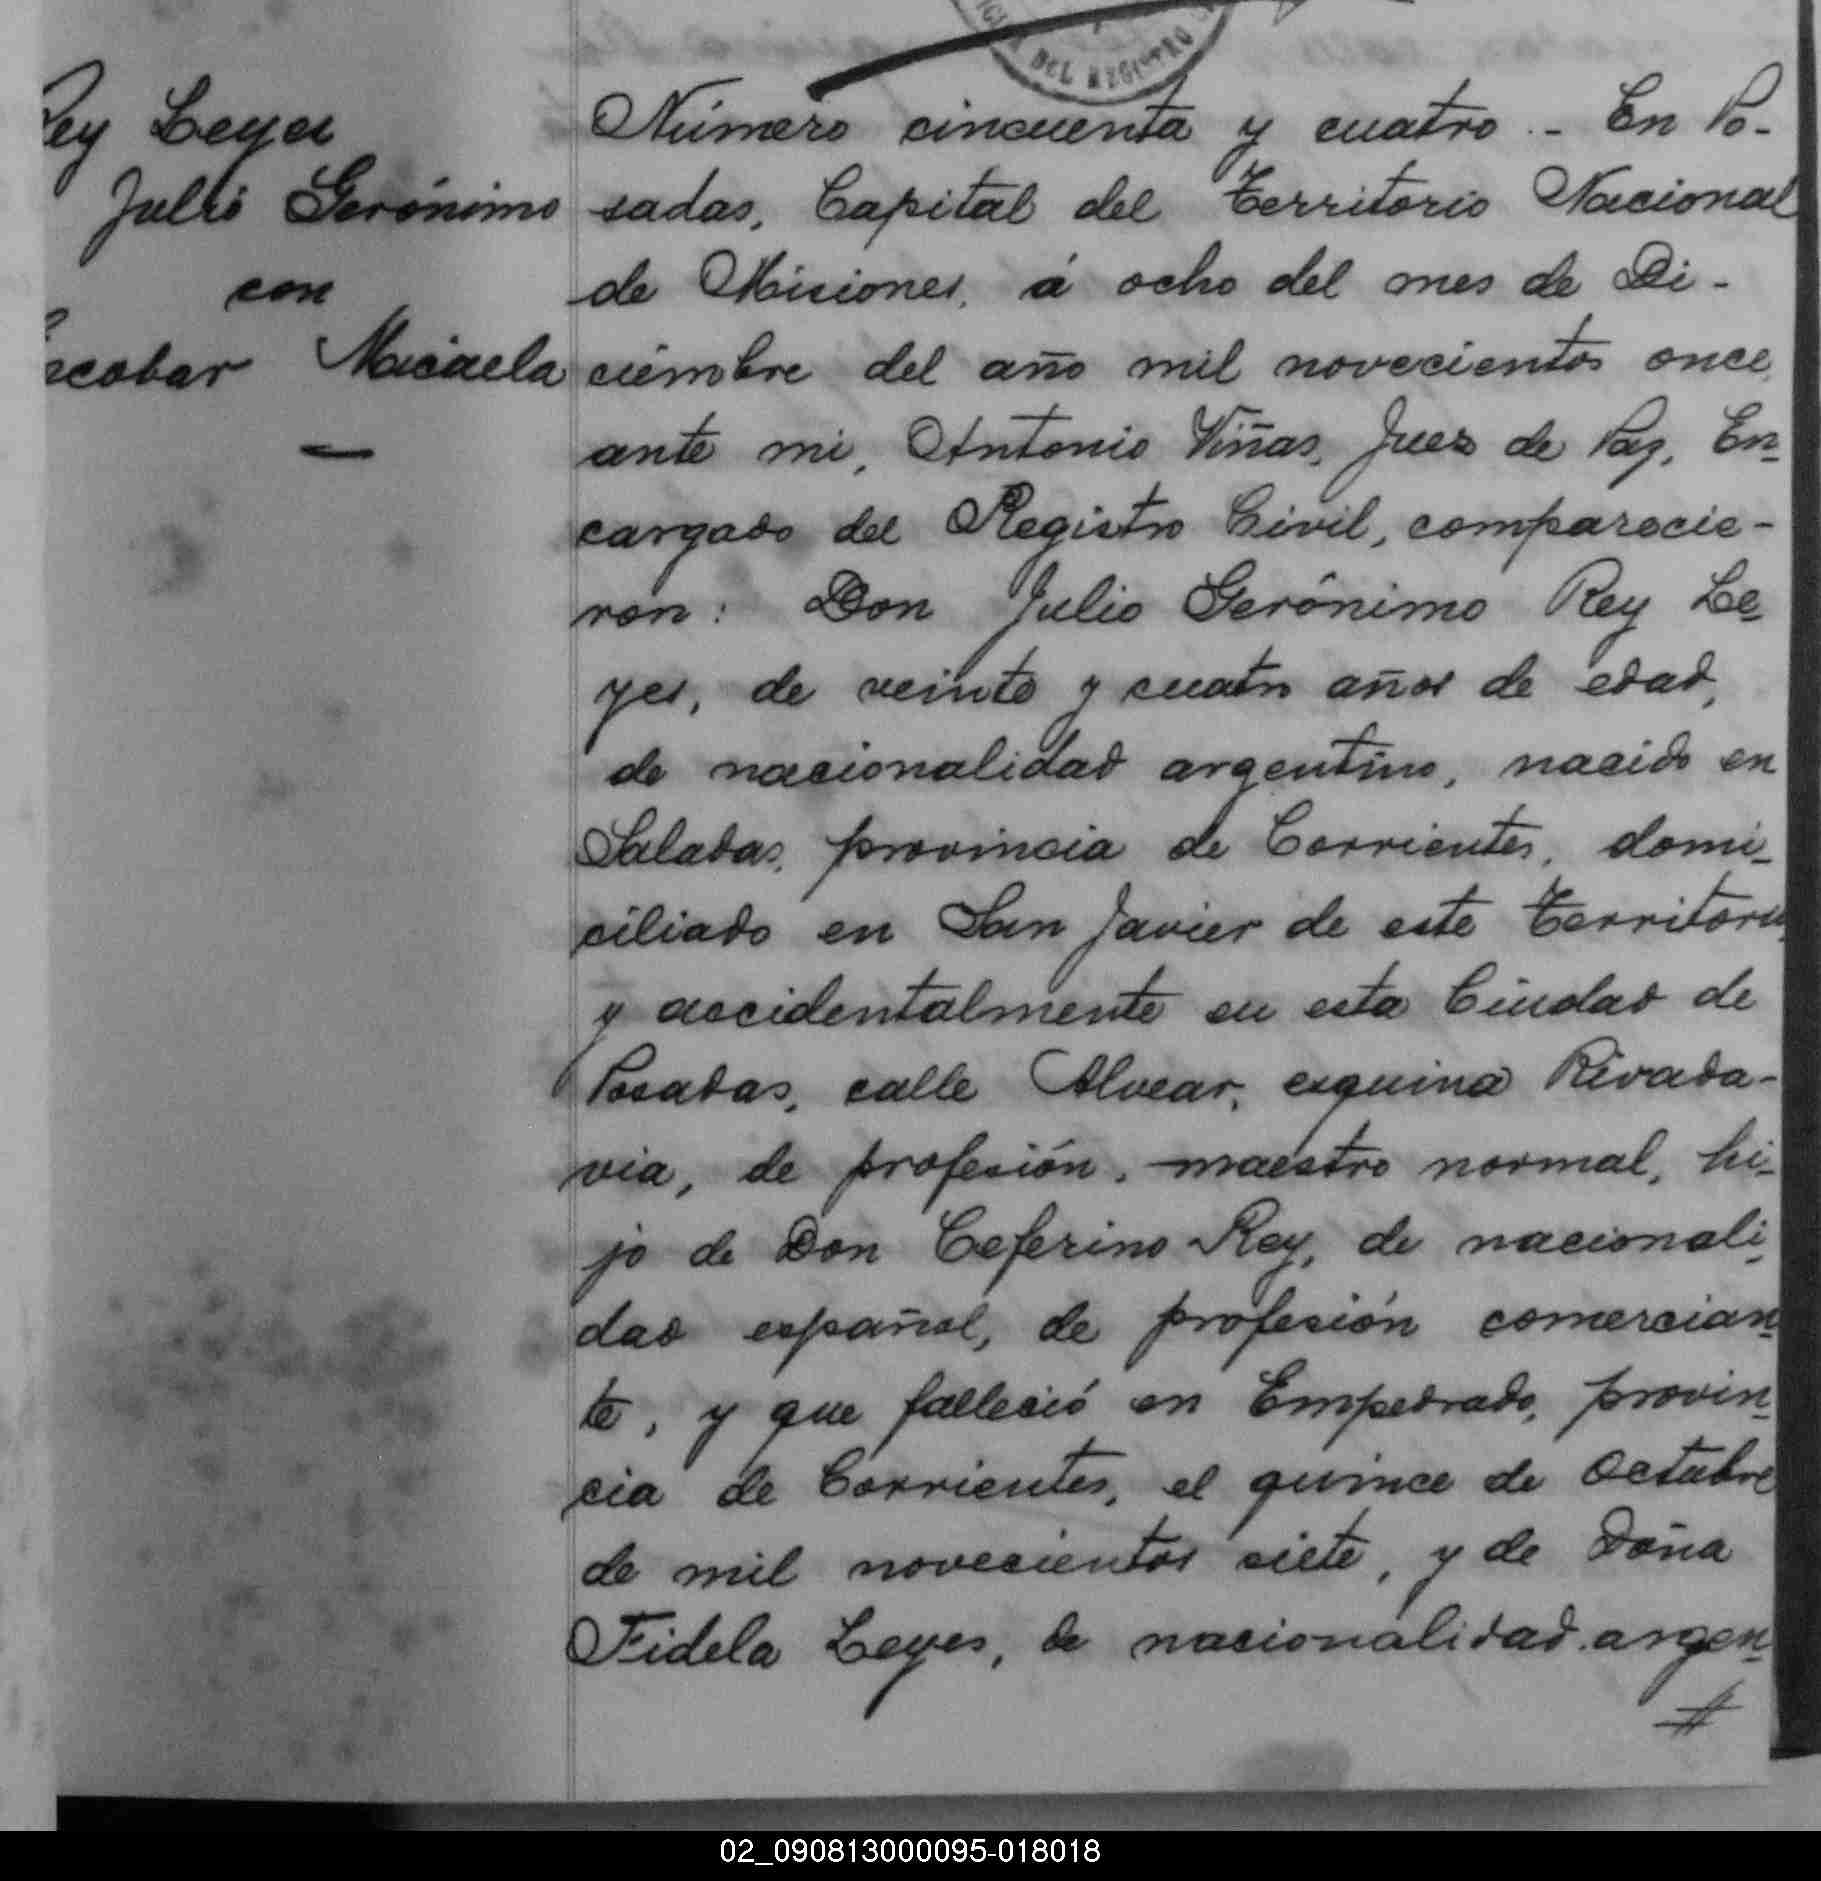 DEL REGISTRO
Rey Leyes
Julio Gerónimo
con
Escobar Micaela
Número cincuenta y cuatro.- En Po-
sadas, Capital del Territorio Nacional
de Misiones, á ocho del mes de Di-
ciembre del año mil novecientos once,
ante mi, Antonio Viñas, Juez de Paz, En-
cargado del Registro Civil, comparecie-
ron: Don Julio Gerónimo Rey Le-
yes, de veinte y cuatro años de edad,
de nacionalidad argentino, nacido en
Saladas, provincia de Corrientes, domi-
ciliado en San Javier de este Territorio,
y accidentalmente en esta Ciudad de
Posadas, calle Alvear, esquina Rivada-
via, de profesión, maestro normal, hi-
jo de Don Ceferino Rey, de nacionali-
dad español, de profesión comercian-
te, y que falleció en Empedrado, provin-
cia de Corrientes, el quince de Octubre
de mil novecientos siete, y de Doña
Fidela Leyes, de nacionalidad argen-
02_090813000095-018018